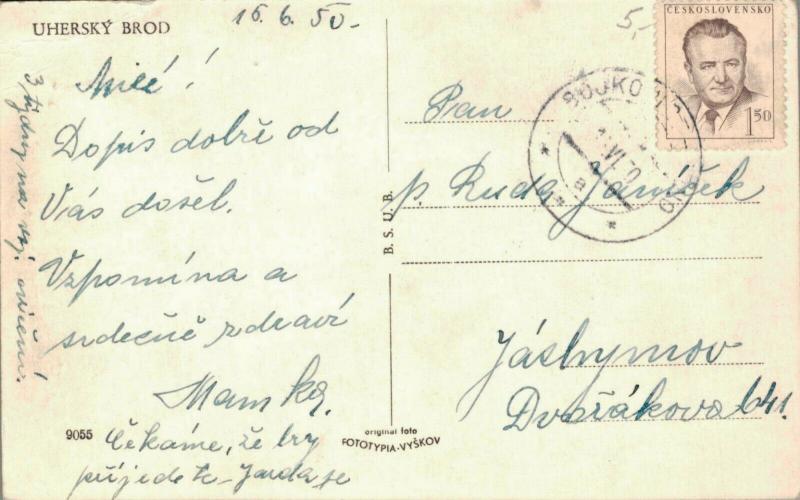 UHERSKÝ BROD
16.6.50-
5,-
ČESKOSLOVENSKO
1.50
BOJKOV
Milé!
Dopis dobře od
Vás došel.
Vzpomíná a
srdečně zdraví
Mamka.
Čekáme, že by
přijedete Jarda se
3 týdny na voj. cvičení.
9055
original foto
FOTOTYPIA-VYŠKOV
B. S. U. B.
Pan
p. Ruda Janíček
Jáchymov
Dvořákova 641.